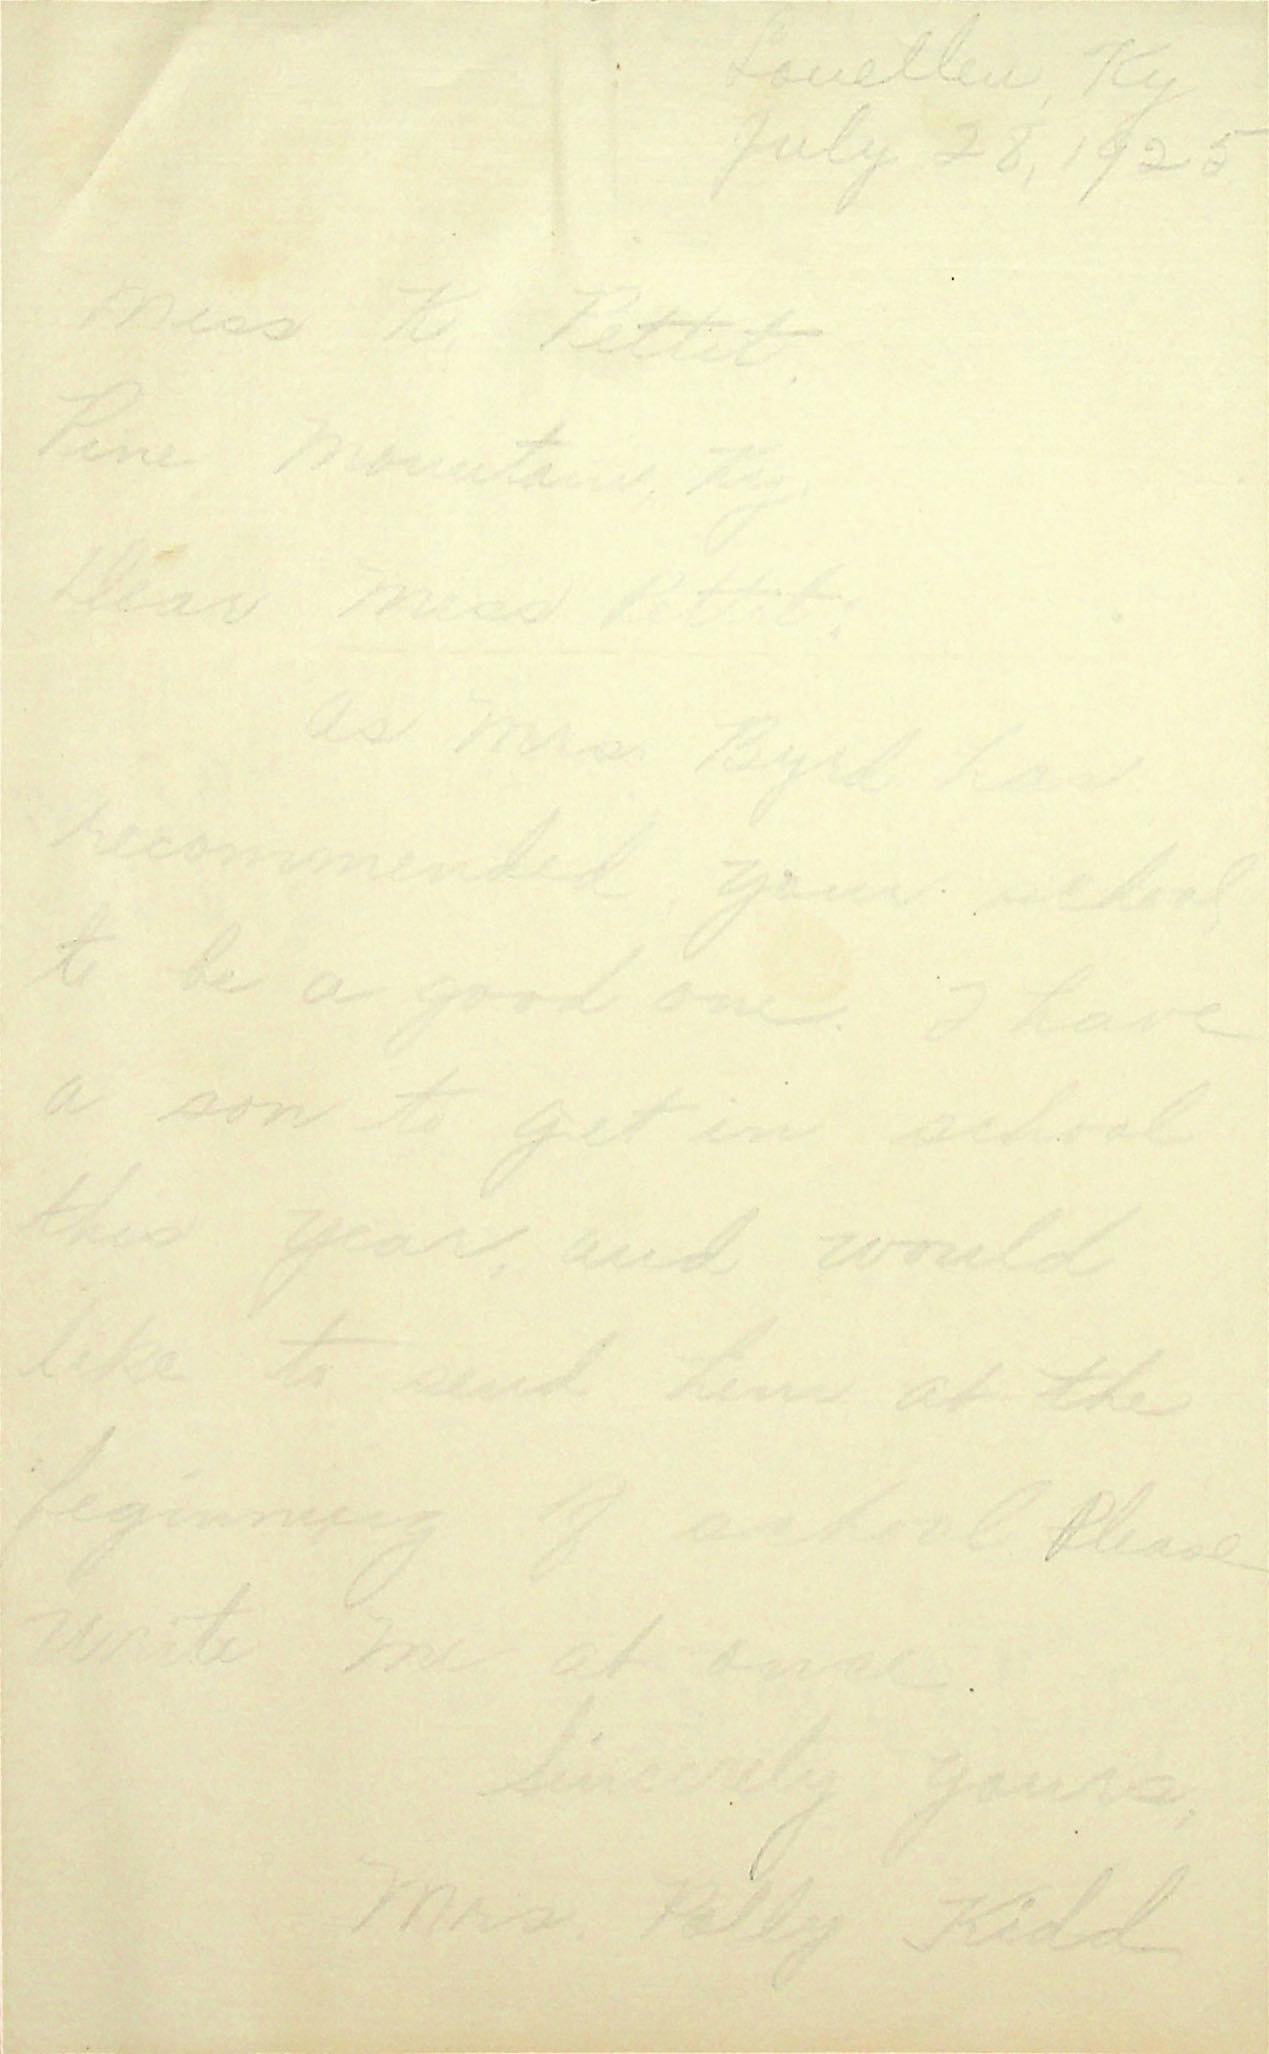 Louellen, Ky
July 28, 1925
Miss K. Pettit.
Pine Mountain, Ky.
Dear Miss Pettit:
As Mrs. Byrd has
recommended your school
to be a good one. I have
a son to get in school
this year, and would
like to send him at the
beginning of school Please
write me at once.
Sincerely yours,
Mrs. Polly Kidd